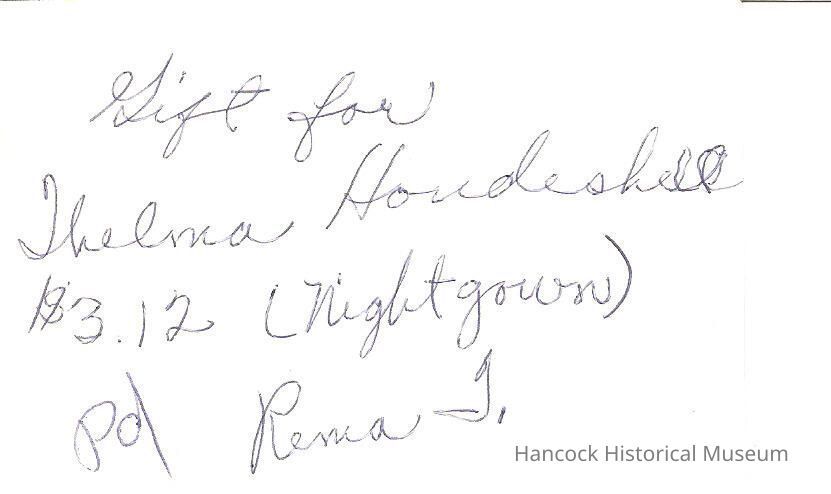 Gift for
Thelma Houdeshell
$3.12 (Nightgown)
Pd Rema T.
Hancock Historical Museum